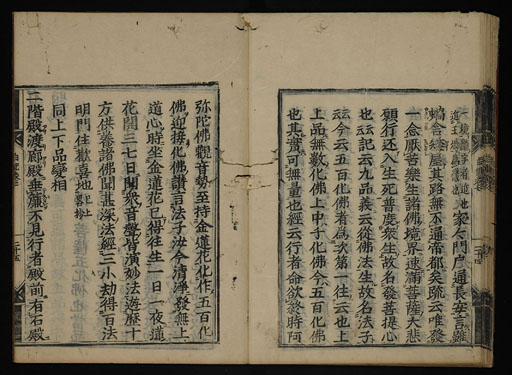 家々門戸通長安言雖
蝸舎矮屋其路無不通帝都矣疏云唯發
一念厭苦樂生諸佛境界速滿菩薩大悲
願行還入生死普度衆生故名發菩提心
也云記云九品義云從佛法生故名法子
云今云五百化佛者爲次第一往云也上
上品無數化佛上中千化佛今五百化佛
也其實可無量也經云行者命欲終時阿
弥陀佛觀音勢至持金蓮花化作五百化
佛迎接化佛讚言法子汝今清淨發無上
道心時坐金蓮花已得往生一日一夜蓮
花開三七日聞衆音聲皆演妙法遊歴十
方供養諸佛聞甚深法經三小劫得百法
明門住歡喜地
同上下品變相
二階殿渡廊殿垂簾不見行者殿前有石殿